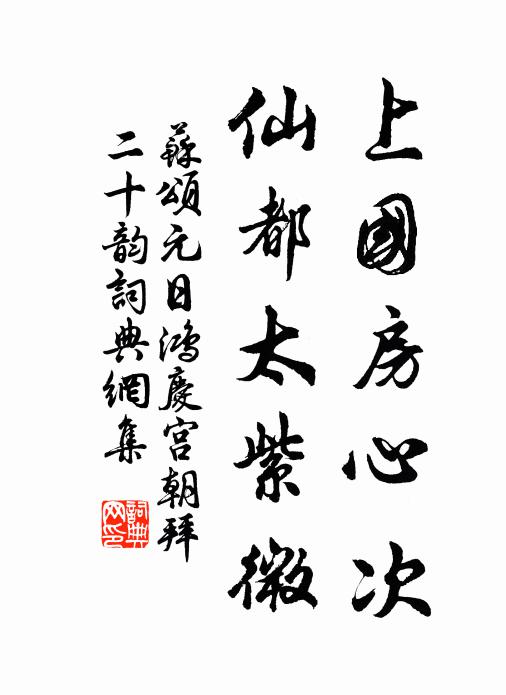 上國房心次
仙都太紫微
蘇頌元日鴻慶宮朝拜
二十韵詞典網集
詞典
网印